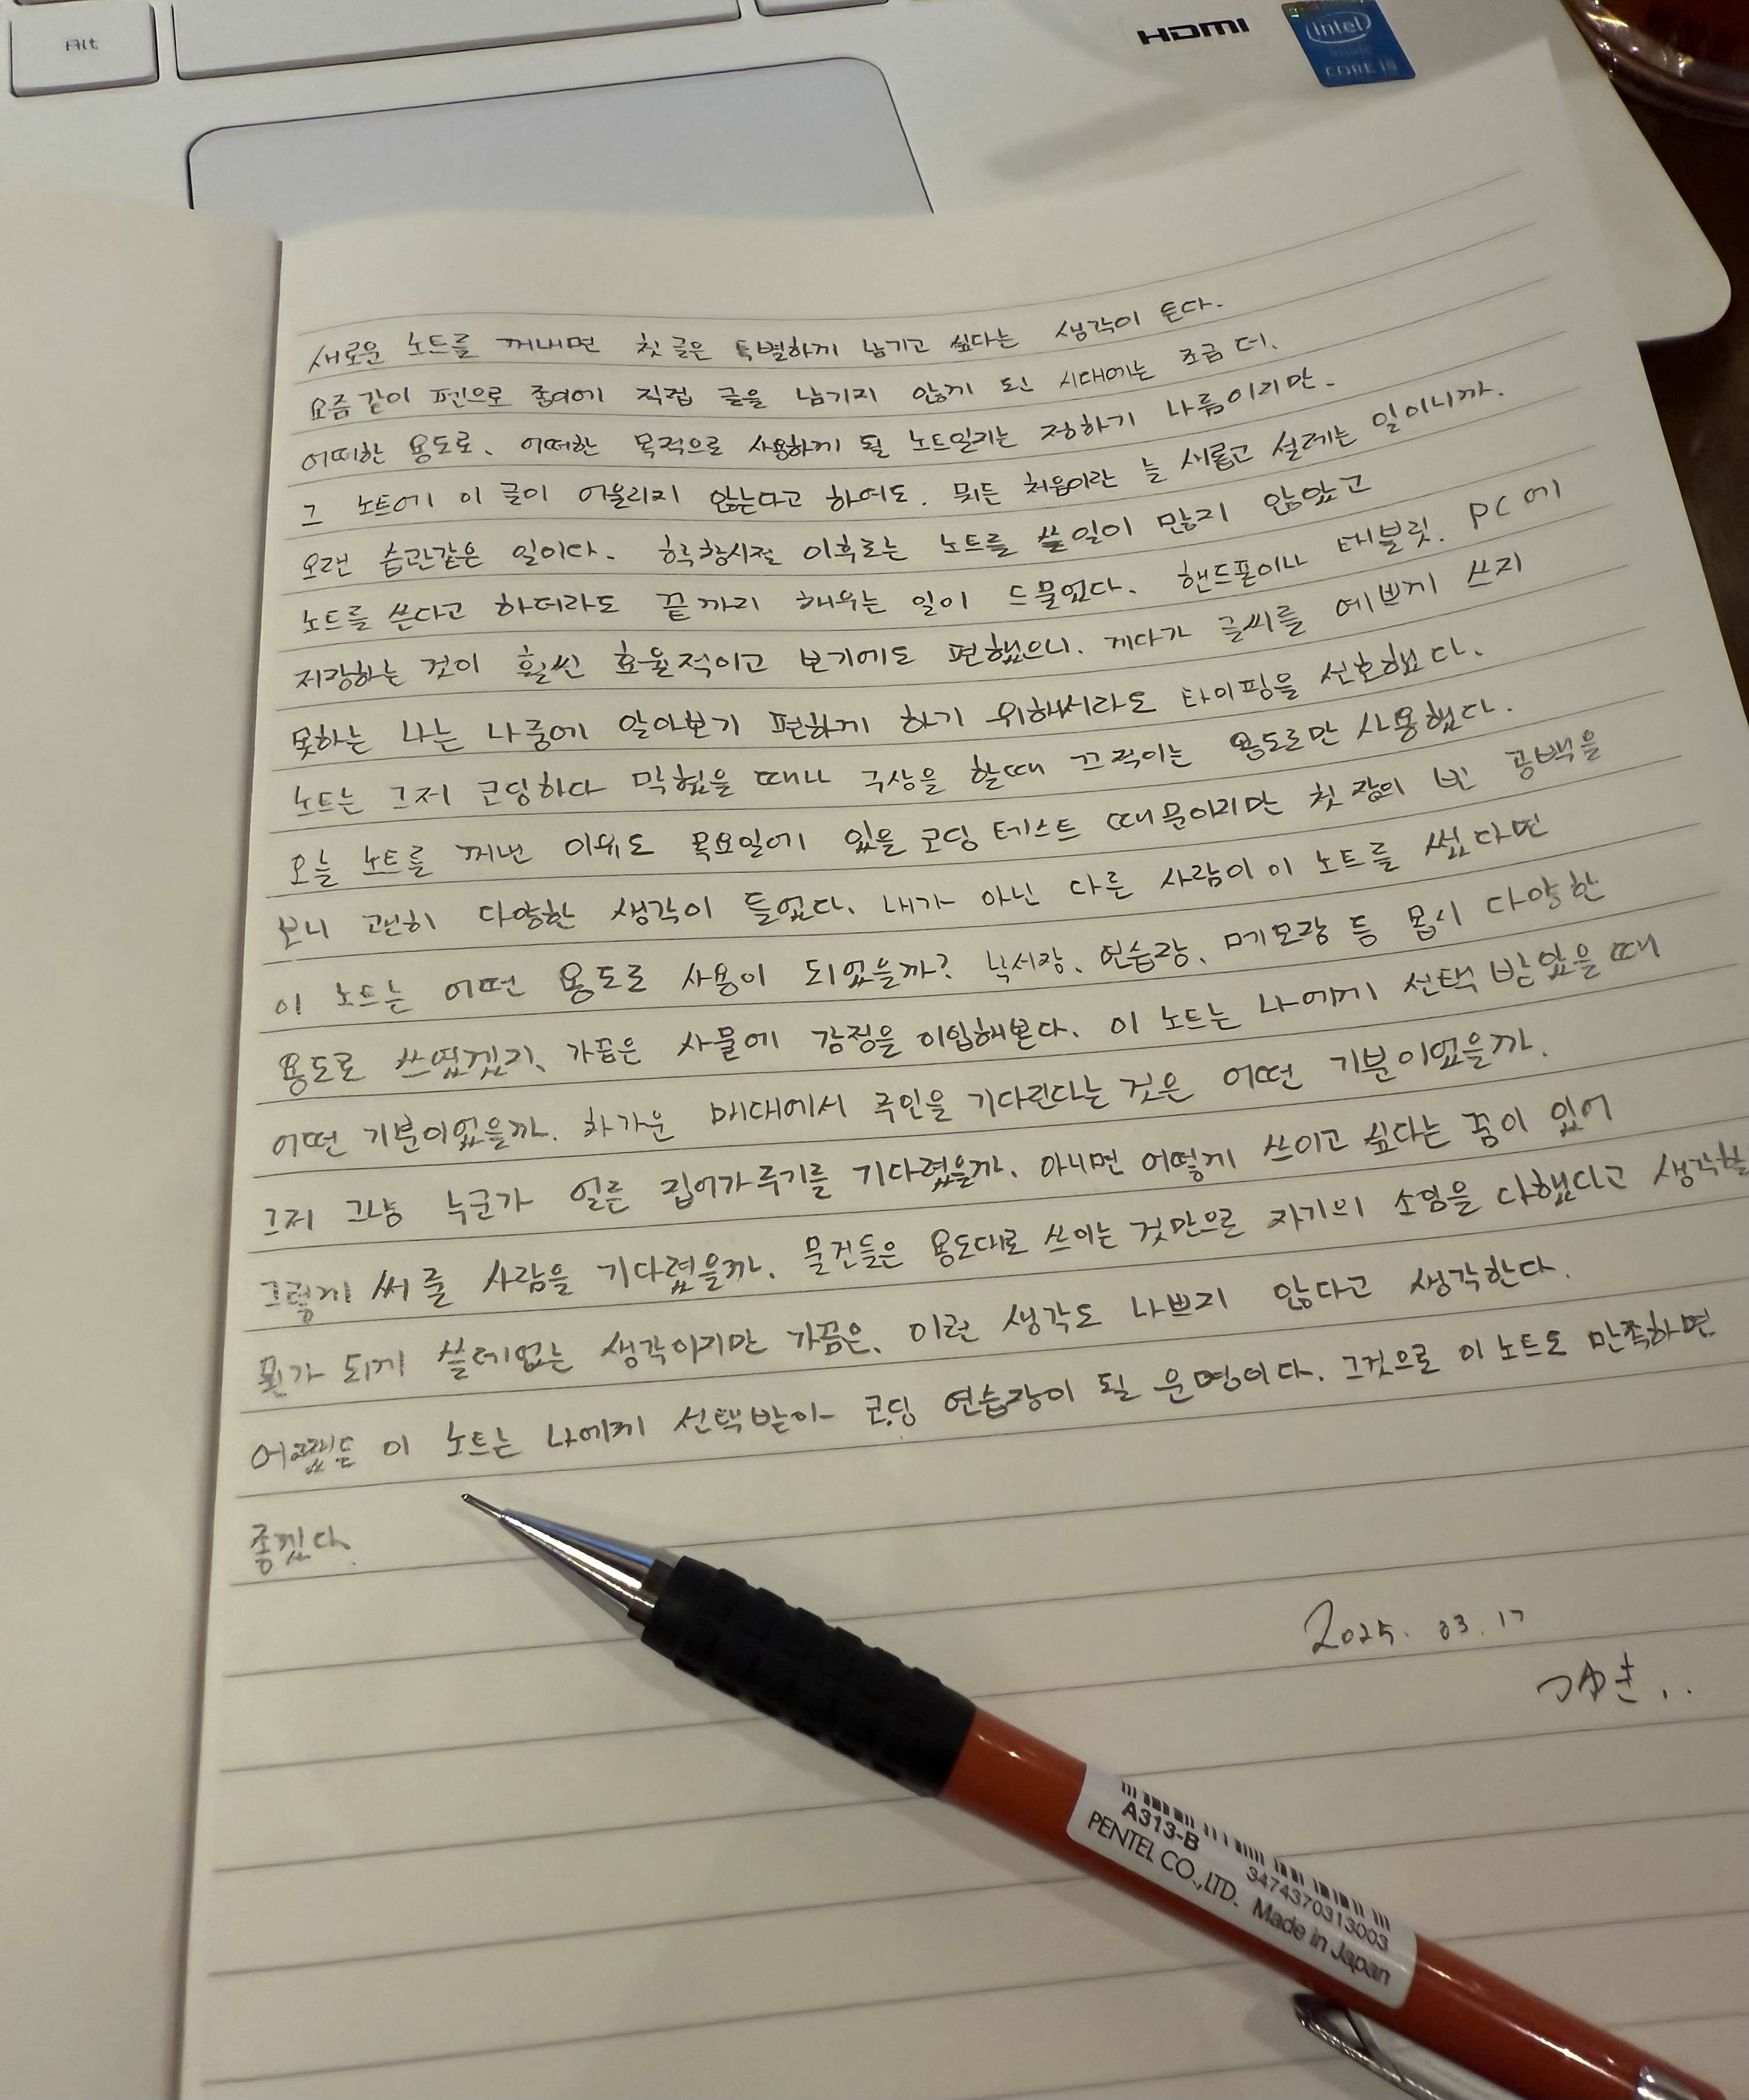 Alt
HDMI
intel
inside
CORE i5
새로운 노트를 꺼내면 첫 글은 특별하게 남기고 싶다는 생각이 든다.
요즘같이 펜으로 종이에 직접 글을 남기지 않게 된 시대에는 조금 더.
어떠한 용도로, 어떠한 목적으로 사용하게 될 노트일지는 정하기 나름이지만.
그 노트에 이 글이 어울리지 않는다고 하여도. 뭐든 처음이란 늘 새롭고 설레는 일이니까.
오랜 습관같은 일이다. 학창시절 이후로는 노트를 쓸 일이 많지 않았고
노트를 쓴다고 하더라도 끝까지 채우는 일이 드물었다. 핸드폰이나 태블릿. PC에
저장하는 것이 훨씬 효율적이고 보기에도 편했으니. 게다가 글씨를 예쁘게 쓰지
못하는 나는 나중에 알아보기 편하게 하기 위해서라도 타이핑을 선호했다.
노트는 그저 코딩하다 막혔을 때나 구상을 할때 끄적이는 용도로만 사용했다.
오늘 노트를 꺼낸 이유도 목요일에 있을 코딩 테스트 때문이지만 첫 장의 빈 공백을
보니 괜히 다양한 생각이 들었다. 내가 아닌 다른 사람이 이 노트를 썼다면
이 노트는 어떤 용도로 사용이 되었을까? 낙서장, 연습장, 메모장 등 몹시 다양한
용도로 쓰였겠지. 가끔은 사물에 감정을 이입해본다. 이 노트는 나에게 선택 받았을 때
어떤 기분이었을까. 차가운 매대에서 주인을 기다린다는 것은 어떤 기분이었을까.
그저 그냥 누군가 얼른 집어가주기를 기다렸을까. 아니면 어떻게 쓰이고 싶다는 꿈이 있어
그렇게 써 줄 사람을 기다렸을까. 물건들은 용도대로 쓰이는 것만으로 자기의 소명을 다했다고 생각할
뭔가 되게 쓸데없는 생각이지만 가끔은, 이런 생각도 나쁘지 않다고 생각한다.
어쨌든 이 노트는 나에게 선택받아 코딩 연습장이 될 운명이다. 그것으로 이 노트도 만족하면
좋겠다.
2025. 03. 17
つゆき..
A313-B
3474370313003
PENTEL CO.,LTD. Made in Japan